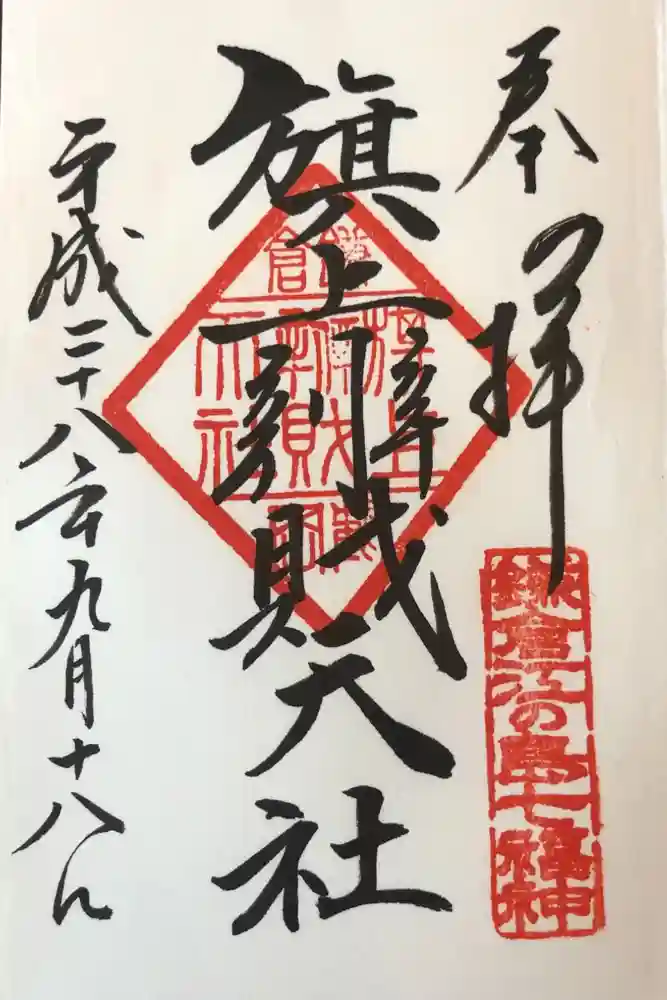 奉拝
鎌倉江の島七福神
旗上辨財天社
鎌倉
平成二十八年九月十八日